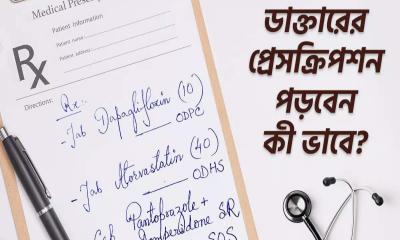 Medical Prescri
Patient Information
Patient name:
Patient address:
Rx
Directions:
Rx:-
- Tab Dapagliflozin (10)
ODPC
- Tab Atorvastatin (40)
ODHS
Cap Pantoprazole +
Domperidone SR
SOS
ডাক্তারের
প্রেসক্রিপশন
পড়বেন
কী ভাবে?